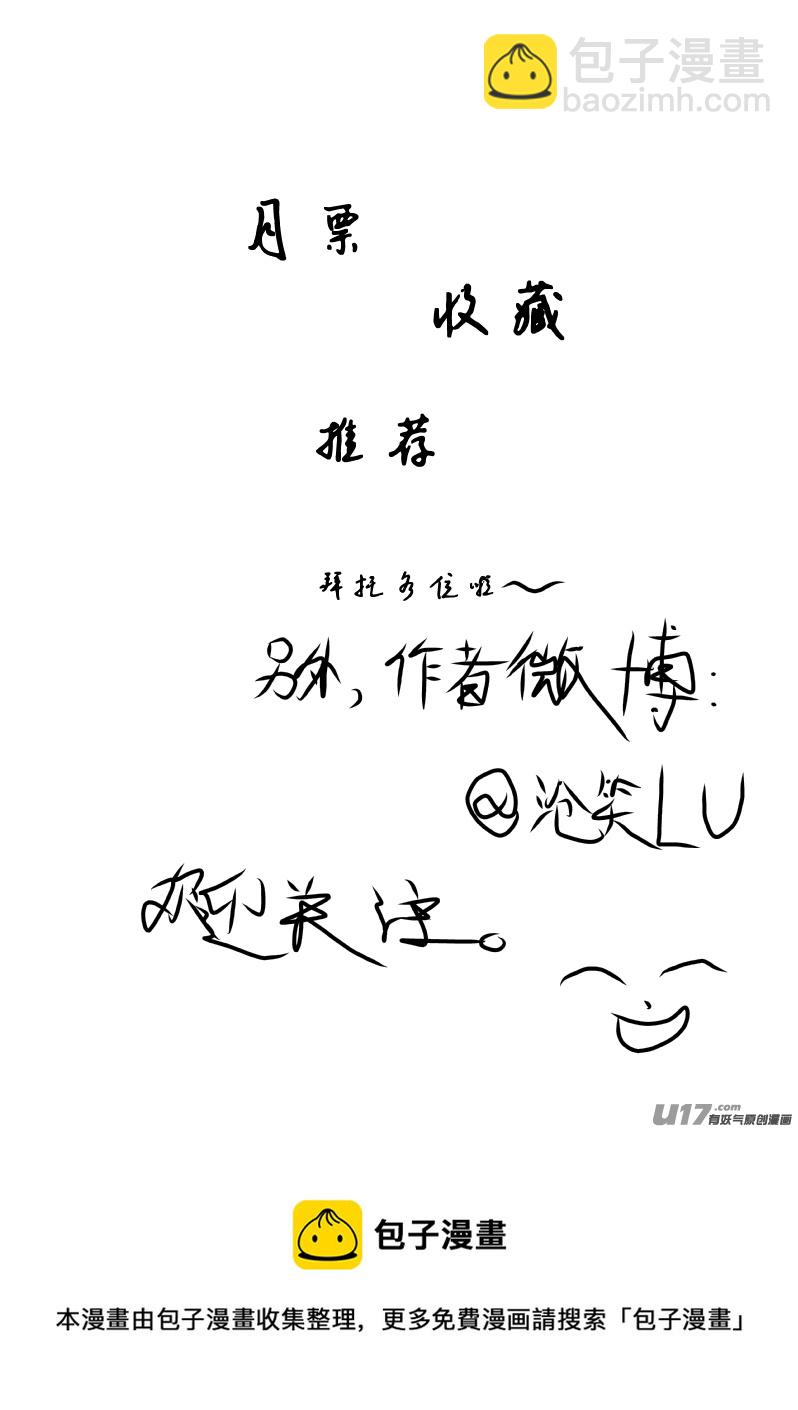 包子漫畫
baozimh.com
月票
收藏
推荐
拜托各位啦~
另外,作者微博:
@沧笑LU
欢迎关注。
U17.com
有妖气原创漫画
包子漫畫
本漫畫由包子漫畫收集整理,更多免費漫画請搜索「包子漫畫」